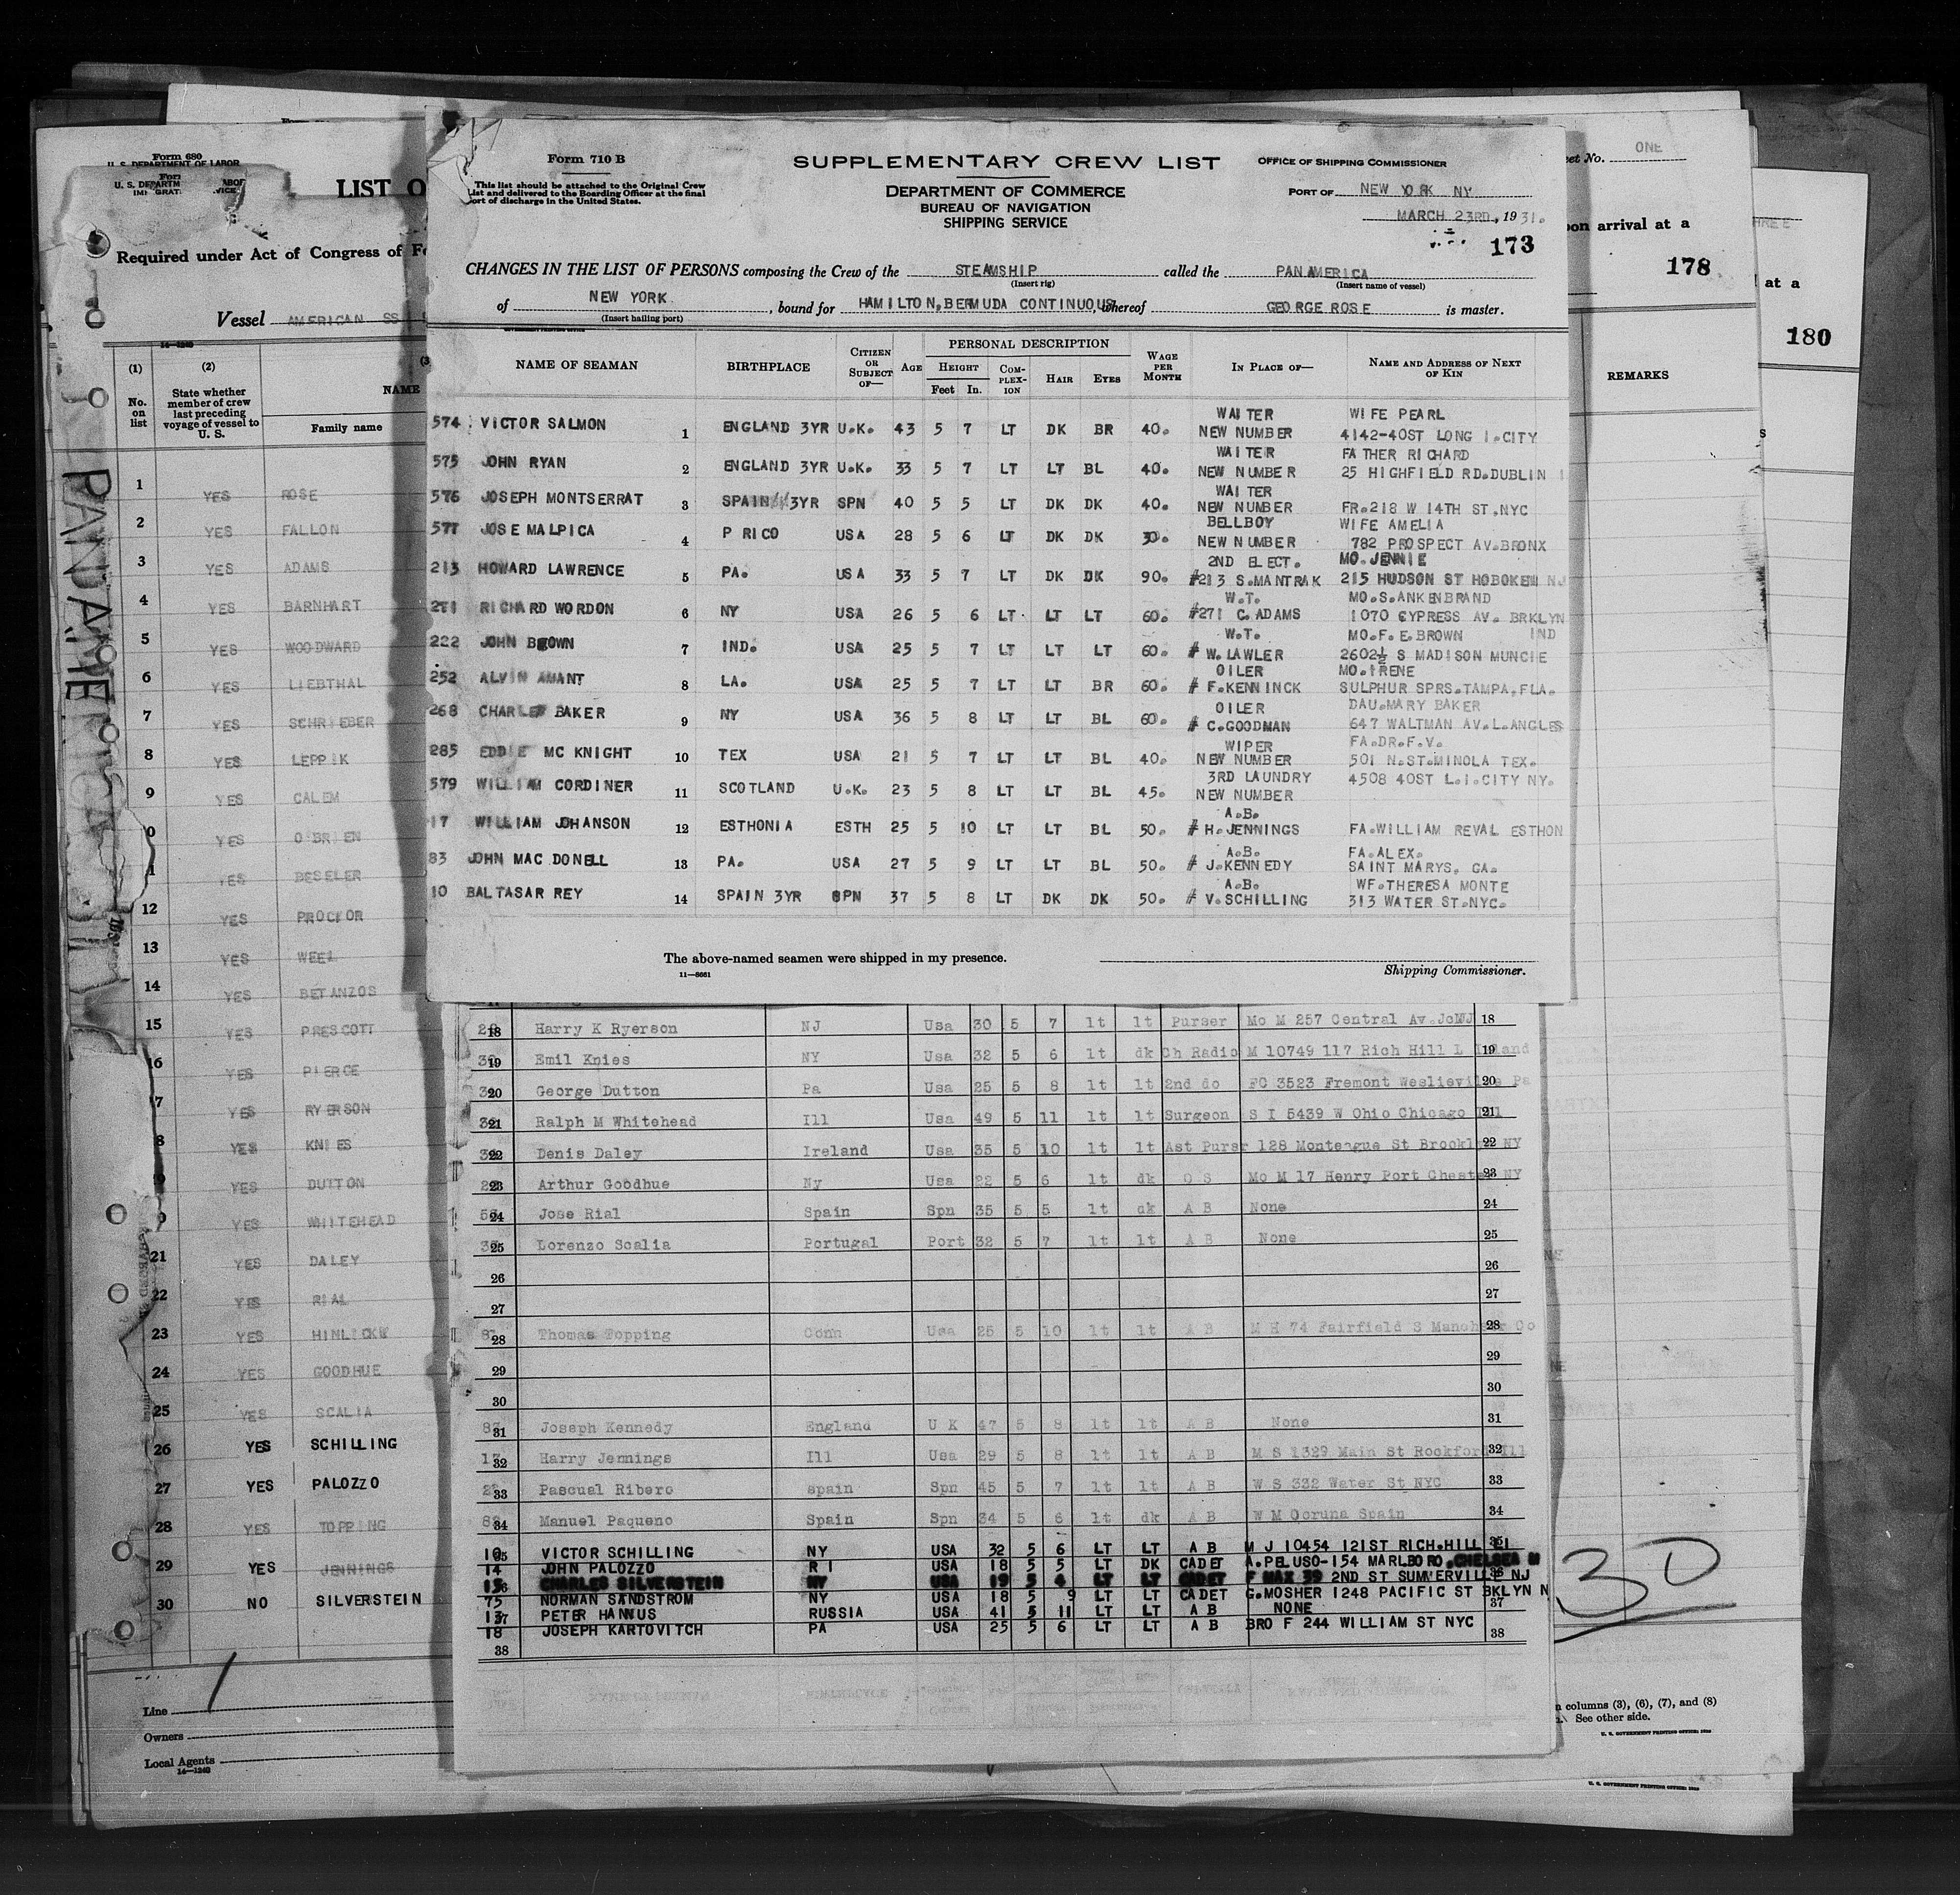 Form 680
U. S. DEPARTMENT OF LABOR
LIST O
Required under Act of Congress of Fe
Vessel AMERICAN SS
(1) (2) (3
No. on list
State whether member of crew last preceding voyage of vessel to U. S.
NAME
Family name
1 YES ROSE
2 YES FALLON
3 YES ADAMS
4 YES BARNHART
5 YES WOODWARD
6 YES LIEBTHAL
7 YES SCHRIEBER
8 YES LEPPIK
9 YES CALEM
0 YES O'BRIEN
1 YES BESELER
12 YES PROCTOR
13 YES WEEL
14 YES BETANZOS
15 YES PRESCOTT
16 YES PIERCE
7 YES RYERSON
8 YES KNIES
9 YES DUTTON
YES WHITEHEAD
21 YES DALEY
22 YES RIAL
23 YES HINLICKY
24 YES GOODHUE
25 YES SCALIA
26 YES SCHILLING
27 YES PALOZZO
28 YES TOPPING
29 YES JENNINGS
30 NO SILVERSTEIN
Line
Owners
Local Agents
14—1240
Form 710 B
This list should be attached to the Original Crew
List and delivered to the Boarding Officer at the final
port of discharge in the United States.
SUPPLEMENTARY CREW LIST
DEPARTMENT OF COMMERCE
BUREAU OF NAVIGATION
SHIPPING SERVICE
OFFICE OF SHIPPING COMMISSIONER
PORT OF NEW YORK NY
MARCH 23RD, 1931.
173
CHANGES IN THE LIST OF PERSONS composing the Crew of the STEAMSHIP called the PANAMERICA
(Insert rig) (Insert name of vessel)
of NEW YORK, bound for HAMILTON, BERMUDA CONTINUOUS, whereof GEORGE ROSE is master.
(Insert hailing port)
NAME OF SEAMAN BIRTHPLACE CITIZEN OR SUBJECT OF— AGE PERSONAL DESCRIPTION WAGE PER MONTH IN PLACE OF— NAME AND ADDRESS OF NEXT OF KIN
HEIGHT COMPLEXION HAIR EYES
Feet In.
WAITER WIFE PEARL
574 VICTOR SALMON 1 ENGLAND 3YR U.K. 43 5 7 LT DK BR 40. NEW NUMBER 4142-40ST LONG I.CITY
WAITER FATHER RICHARD
575 JOHN RYAN 2 ENGLAND 3YR U.K. 33 5 7 LT LT BL 40. NEW NUMBER 25 HIGHFIELD RD.DUBLIN
WAITER
576 JOSEPH MONTSERRAT 3 SPAIN 3YR SPN 40 5 5 LT DK DK 40. NEW NUMBER FR.218 W 14TH ST.NYC
BELLBOY WIFE AMELIA
577 JOSE MALPICA 4 P RICO USA 28 5 6 LT DK DK 30. NEW NUMBER 782 PROSPECT AV.BRONX
2ND ELECT. MO.JENNIE
213 HOWARD LAWRENCE 5 PA. USA 33 5 7 LT DK DK 90. #213 S.MANTRAK 215 HUDSON ST HOBOKEN NJ
W.T. MO.S.ANKENBRAND
271 RICHARD WORDON 6 NY USA 26 5 6 LT LT LT 60. #271 C.ADAMS 1070 CYPRESS AV. BRKLYN
W.T. MO.F.E.BROWN IND
222 JOHN BROWN 7 IND. USA 25 5 7 LT LT LT 60. # W.LAWLER 2602½ S MADISON MUNCIE
OILER MO.IRENE
252 ALVIN AMANT 8 LA. USA 25 5 7 LT LT BR 60. # F.KENNINCK SULPHUR SPRS.TAMPA.FLA.
OILER DAU.MARY BAKER
268 CHARLES BAKER 9 NY USA 36 5 8 LT LT BL 60. # C.GOODMAN 647 WALTMAN AV.L.ANGLES
WIPER FA.DR.F.V.
285 EDDIE MC KNIGHT 10 TEX USA 21 5 7 LT LT BL 40. NEW NUMBER 501 N.ST.MINOLA TEX.
3RD LAUNDRY 4508 40ST L.I.CITY NY.
579 WILLIAM CORDINER 11 SCOTLAND U.K. 23 5 8 LT LT BL 45. NEW NUMBER
A.B.
17 WILLIAM JOHANSON 12 ESTHONIA ESTH 25 5 10 LT LT BL 50. # H.JENNINGS FA.WILLIAM REVAL ESTHON
A.B. FA.ALEX.
83 JOHN MAC DONELL 13 PA. USA 27 5 9 LT LT BL 50. # J.KENNEDY SAINT MARYS. GA.
A.B. WF.THERESA MONTE
10 BALTASAR REY 14 SPAIN 3YR SPN 37 5 8 LT DK DK 50. # V.SCHILLING 313 WATER ST.NYC.
The above-named seamen were shipped in my presence.
11—8661
Shipping Commissioner.
18 Harry K Ryerson NJ Usa 30 5 7 lt lt Purser Mo M 257 Central Av.JcNJ 18
19 Emil Knies NY Usa 32 5 6 lt dk Ch Radio M 10749 117 Rich Hill L Island 19
20 George Dutton Pa Usa 25 5 8 lt lt 2nd do FC 3523 Fremont Weslieville Pa 20
21 Ralph M Whitehead Ill Usa 49 5 11 lt lt Surgeon S I 5439 W Ohio Chicago Ill 21
22 Denis Daley Ireland Usa 35 5 10 lt lt Ast Pursr 128 Monteague St Brooklyn NY 22
23 Arthur Goodhue Ny Usa 22 5 6 lt dk O S Mo M 17 Henry Port Chester NY 23
24 Jose Rial Spain Spn 35 5 5 lt dk A B None 24
25 Lorenzo Scalia Portugal Port 32 5 7 lt lt A B None 25
26 26
27 27
28 Thomas Topping Conn Usa 25 5 10 lt lt A B M H 74 Fairfield S Manchester Co 28
29 29
30 30
31 Joseph Kennedy England U K 47 5 8 lt lt A B None 31
32 Harry Jennings Ill Usa 29 5 8 lt lt A B M S 1329 Main St Rockford Ill 32
33 Pascual Ribero spain Spn 45 5 7 lt lt A B W S 332 Water St NYC 33
34 Manuel Paqueno Spain Spn 34 5 6 lt dk A B W M Ocruna Spain 34
10 VICTOR SCHILLING NY USA 32 5 6 LT LT A B M J 10454 121ST RICH.HILL 35
14 JOHN PALOZZO R I USA 18 5 5 LT DK CADET A.PELUSO-154 MARLBORO.CHELSEA M
CHARLES SILVERSTEIN NY USA 19 5 4 LT LT CADET F MAX 39 2ND ST SUMMERVILLE NJ
75 NORMAN SANDSTROM NY USA 18 5 9 LT LT CADET G.MOSHER 1248 PACIFIC ST BKLYN N
PETER HANNUS RUSSIA USA 41 5 11 LT LT A B NONE 37
18 JOSEPH KARTOVITCH PA USA 25 5 6 LT LT A B BRO F 244 WILLIAM ST NYC
38 38
eet No. ONE
pon arrival at a
178
REMARKS
30
n columns (3), (6), (7), and (8)
See other side.
U. S. GOVERNMENT PRINTING OFFICE
at a
180
U. S. GOVERNMENT PRINTING OFFICE